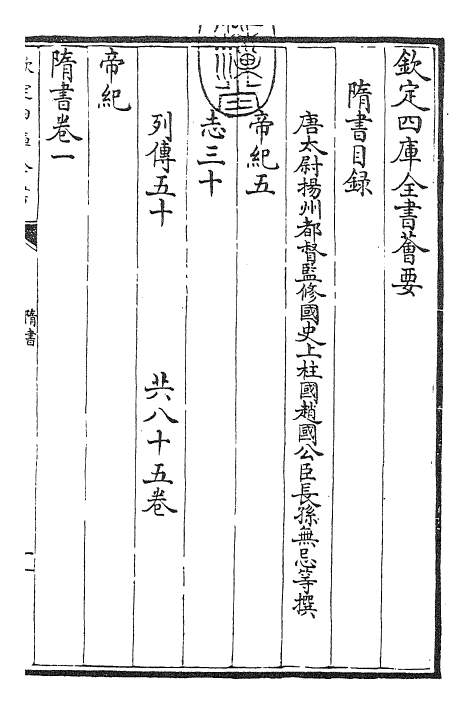 欽定四庫全書薈要
隋書目録
唐太尉揚州都督監修國史上柱國趙國公臣長孫無忌等撰
帝紀五
志三十
列傳五十　共八十五卷
帝紀
隋書卷一
隋書